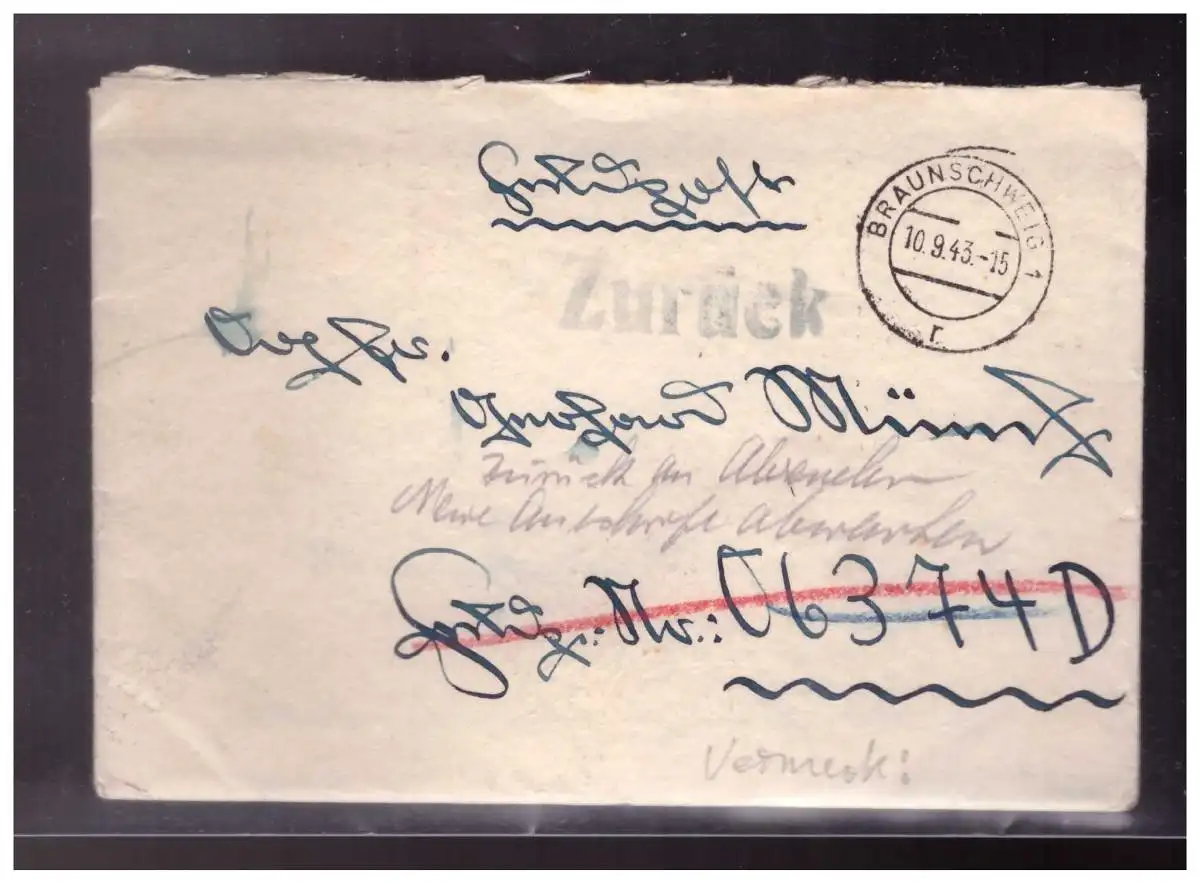 Feldpost
BRAUNSCHWEIG 1
10.9.43.-15
r
Zurück
Gefr.
Gerhard
Zurück an Absender
Neue Anschrift abwarten
Feldp.-Nr.: 06374 D
Vermerk: